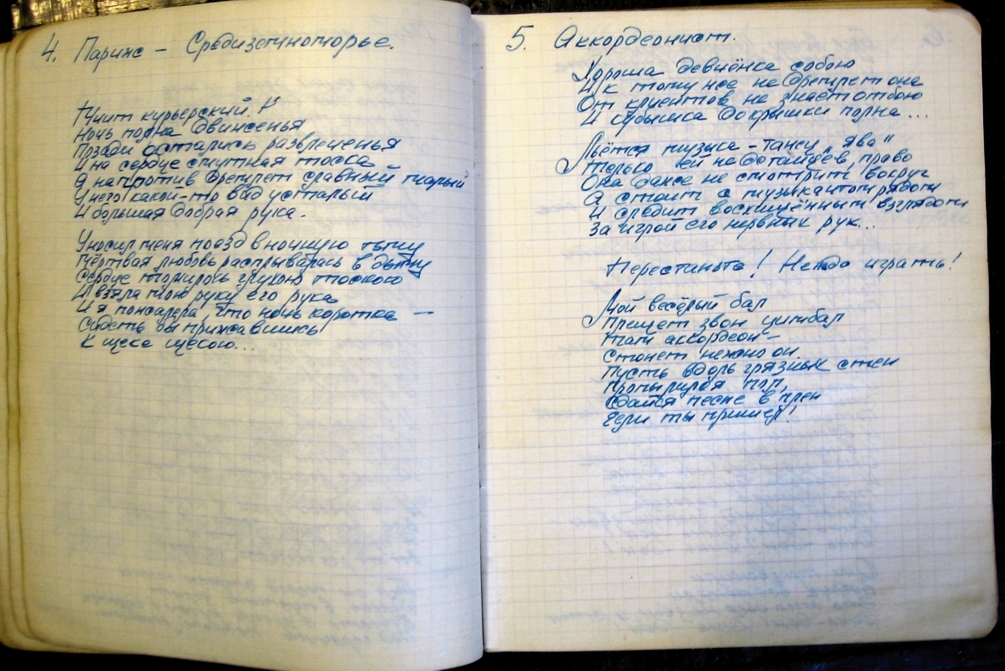 4. Париж – Средиземноморье.
Мчит курьерский.
Ночь полна движенья
Позади остались развлеченья
И на сердце смутная тоска
А напротив дремлет славный малый
У него какой-то вид усталый
И большая добрая рука.
Уносил меня поезд в ночную тьму
Мёртвая любовь расплывалась в дыму
Сердце томилось глухою тоскою
И взяла мою руку его рука
И я пожалела, что ночь коротка —
Сидеть бы прижавшись
К щеке щекою...
5. Аккордеонист.
Хороша девчёнка собою
И к тому же не дремлет она
От клиентов не знает отбою
И кубышка до крышки полна...
Льётся музыка – танец „Ява"
Только ей не до танцев, право
Она даже не смотрит вокруг
А стоит с музыкантом рядом
И следит восхищённым взглядом
За игрой его нервных рук...
Перестаньте! Не надо играть!
Мой весёлый бал
Прищет звон цимбал
Там аккордеон –
Стонет нежно он
Пусть вдоль грязных стен
Пропылился пол,
Сдайся песне в плен
Если ты пришёл!